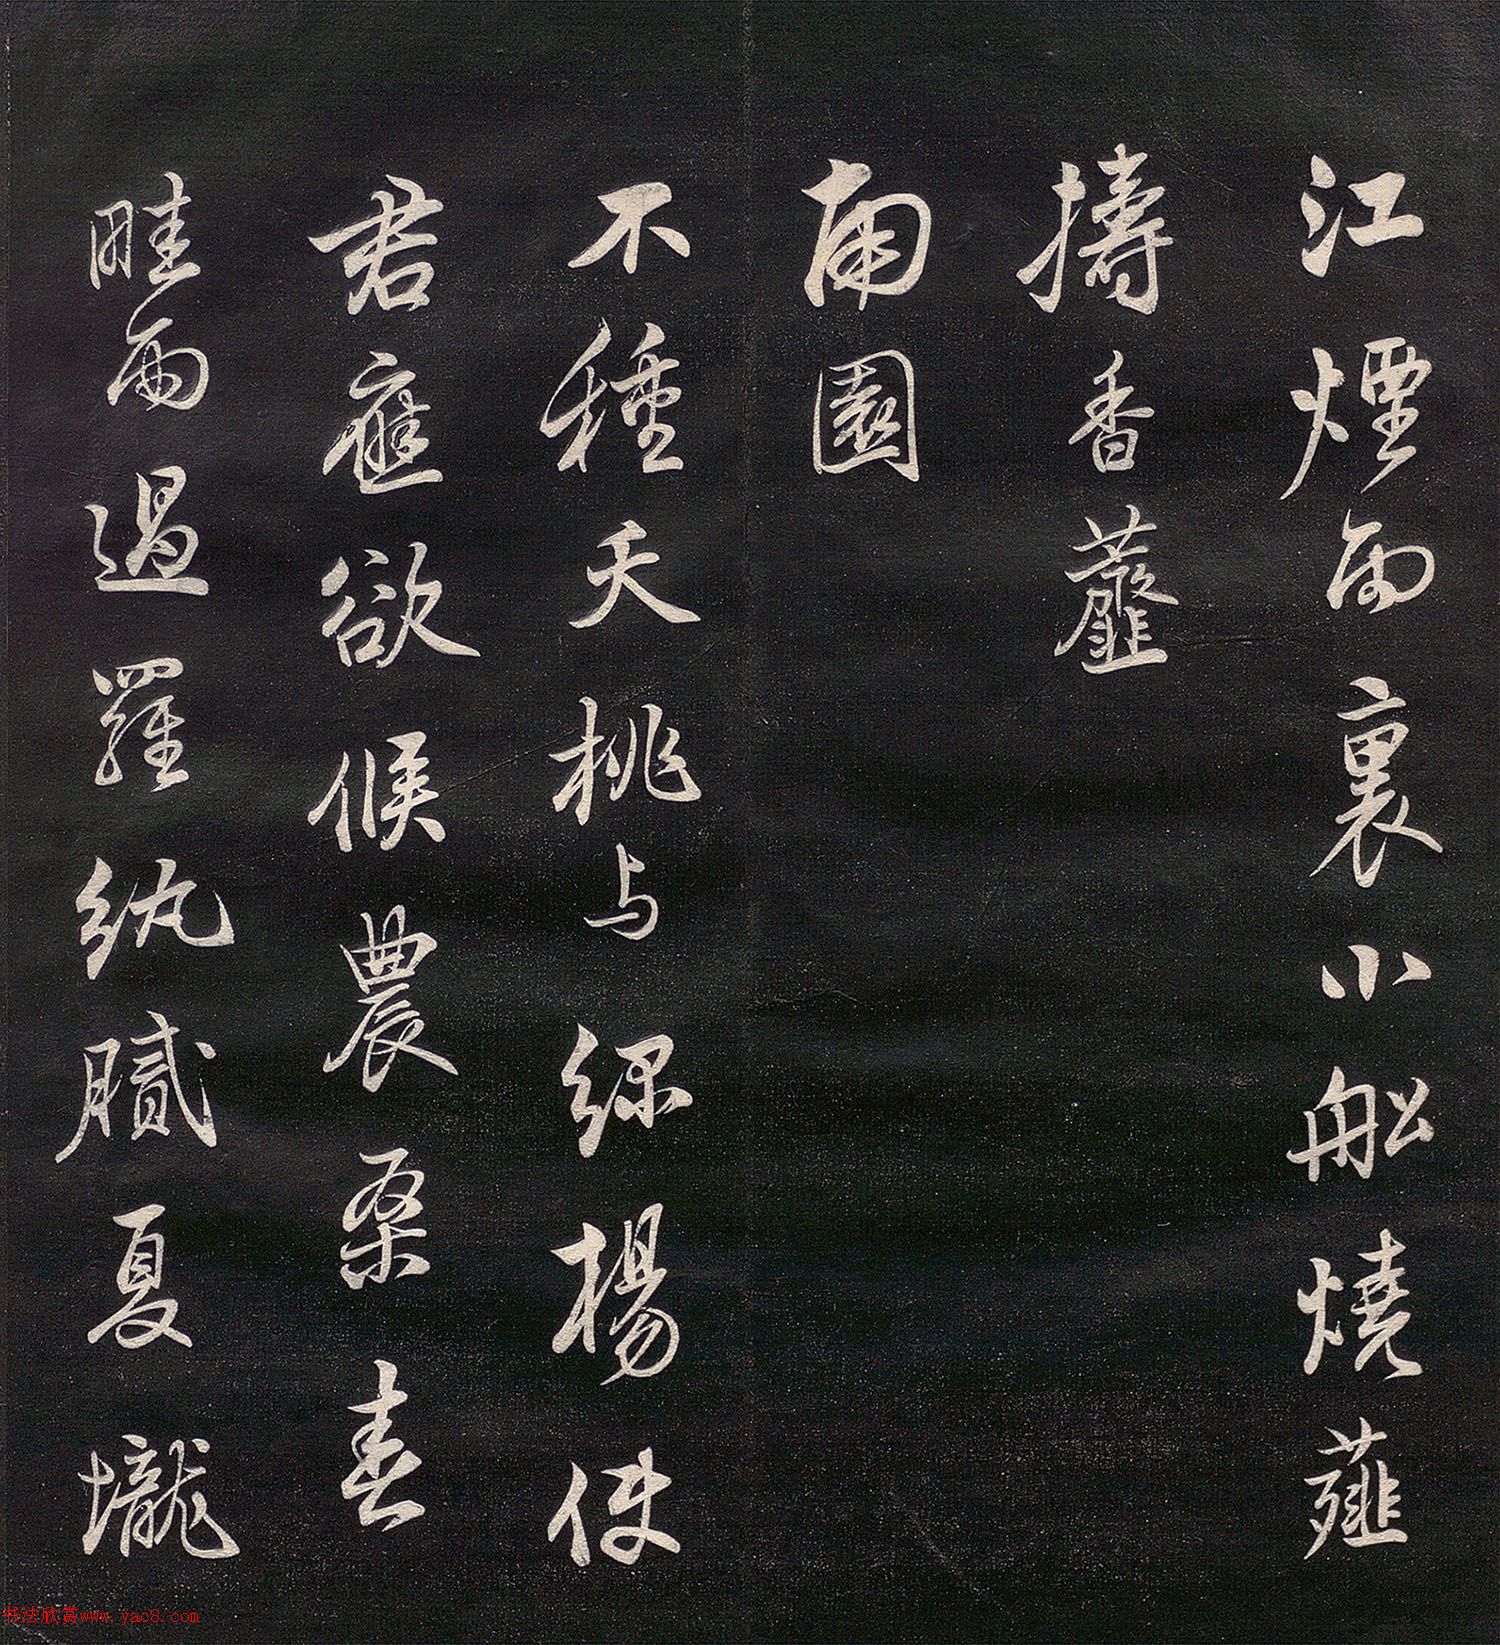 江煙雨裏小舩燒薤
擣香虀
南園
不種夭桃与綠楊使
君應欲候農桑春
畦雨過羅紈膩夏壠
书法欣赏www.yac8.com